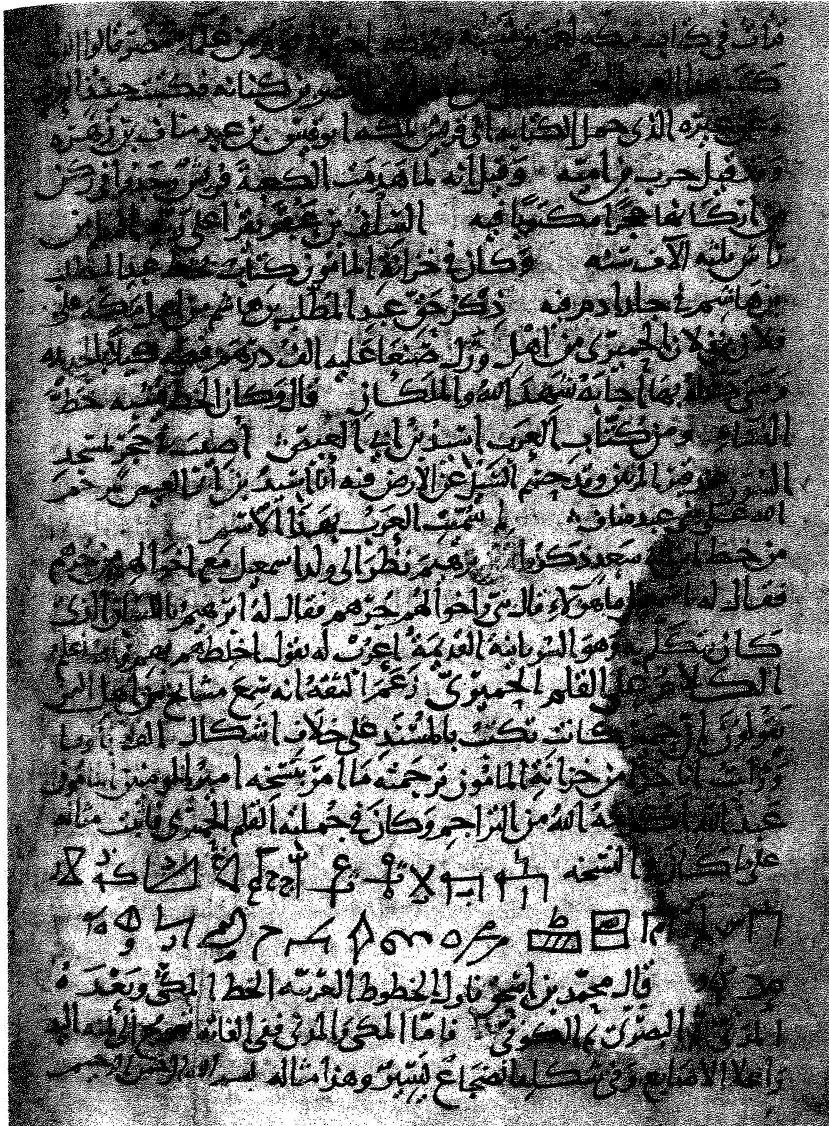 قرأت في كتاب مكة لعمر بن شبة وبخطه اخبرني قوم من علماء مضر قالوا الذي
كتب هذا العربي الجزم رجل من بني النضر بن كنانة فكتبت حينئذ العرب
وعن غيره الذي حمل الكتابة الى قريش بمكة ابو قيس بن عبد مناف بن زهرة
وقد قيل حرب بن امية وقيل انه لما هدمت الكعبة قريش وجدوا في ركن
من اركانها حجرا مكتوبا فيه السلف بن عبقر يقرأ على ربه السلم من
رأس ثلثة الاف سنة وكان في خزانة المأمون كتاب بخط عبد المطلب
بن هاشم في جلد ادم فيه ذكر حق عبد المطلب بن هاشم من اهل مكة على
فلان بن فلان الحميري من اهل وزل صنعا عليه الف درهم فضة كيلا بالحديدة
ومتى دعاه بها اجابه شهد الله والملكان قال وكان الخط شبه خط
النساء ومن كتاب العرب اسيد بن ابي العيص اصيب في حجر بمسجد
السرر عند قبر المريين وقد حسر السيل عن الارض فيه انا اسيد بن ابي العيص ترحم
الله على بني عبد مناف لم سميت العرب بهذا الاسم
من خط ابن ابي سعد ذكروا ابرهيم نظر الى ولد اسمعيل مع اخوالهم من جرهم
فقال له يا اسمعيل ما هولاء قال بني واخوالهم جرهم فقال له ابرهيم باللسان الذي
كان يتكلم به وهو السريانية القديمة اعرب له يقول اخلطهم بهم والله اعلم
الكلام على القلم الحميري زعم الثقة انه سمع مشايخ من اهل اليمن
يقولون ان حمير كانت تكتب بالمسند على خلاف اشكال الف وبا وتا
ورأيت انا جزوا من خزانة المأمون ترجمته ما امر بنسخه امير المومنين المأمون
عبد الله اكرمه الله من التراجم وكان في جملته القلم الحميري فاثبت مثاله
على ما كان في النسخة
قال محمد بن اسحق فاول الخطوط العربية الخط المكي وبعده
المدني ثم البصري ثم الكوفي فاما المكي والمدني ففي الفاته تعويج الى يمنة اليد
واعلا الاصابع وفي شكله انضجاع يسير وهذا مثاله بسم الله الرحمن الرحيم